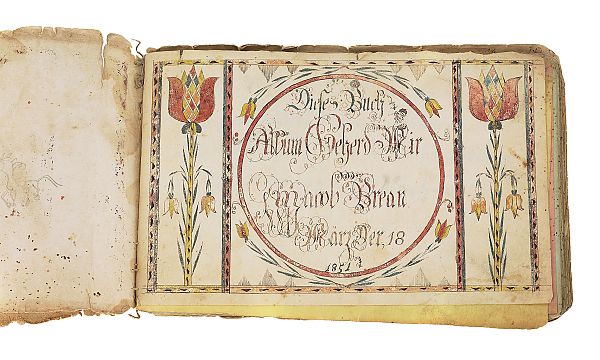 Dieses Buch
Album Geherd Mir
Jacob
März Der. 18
1851